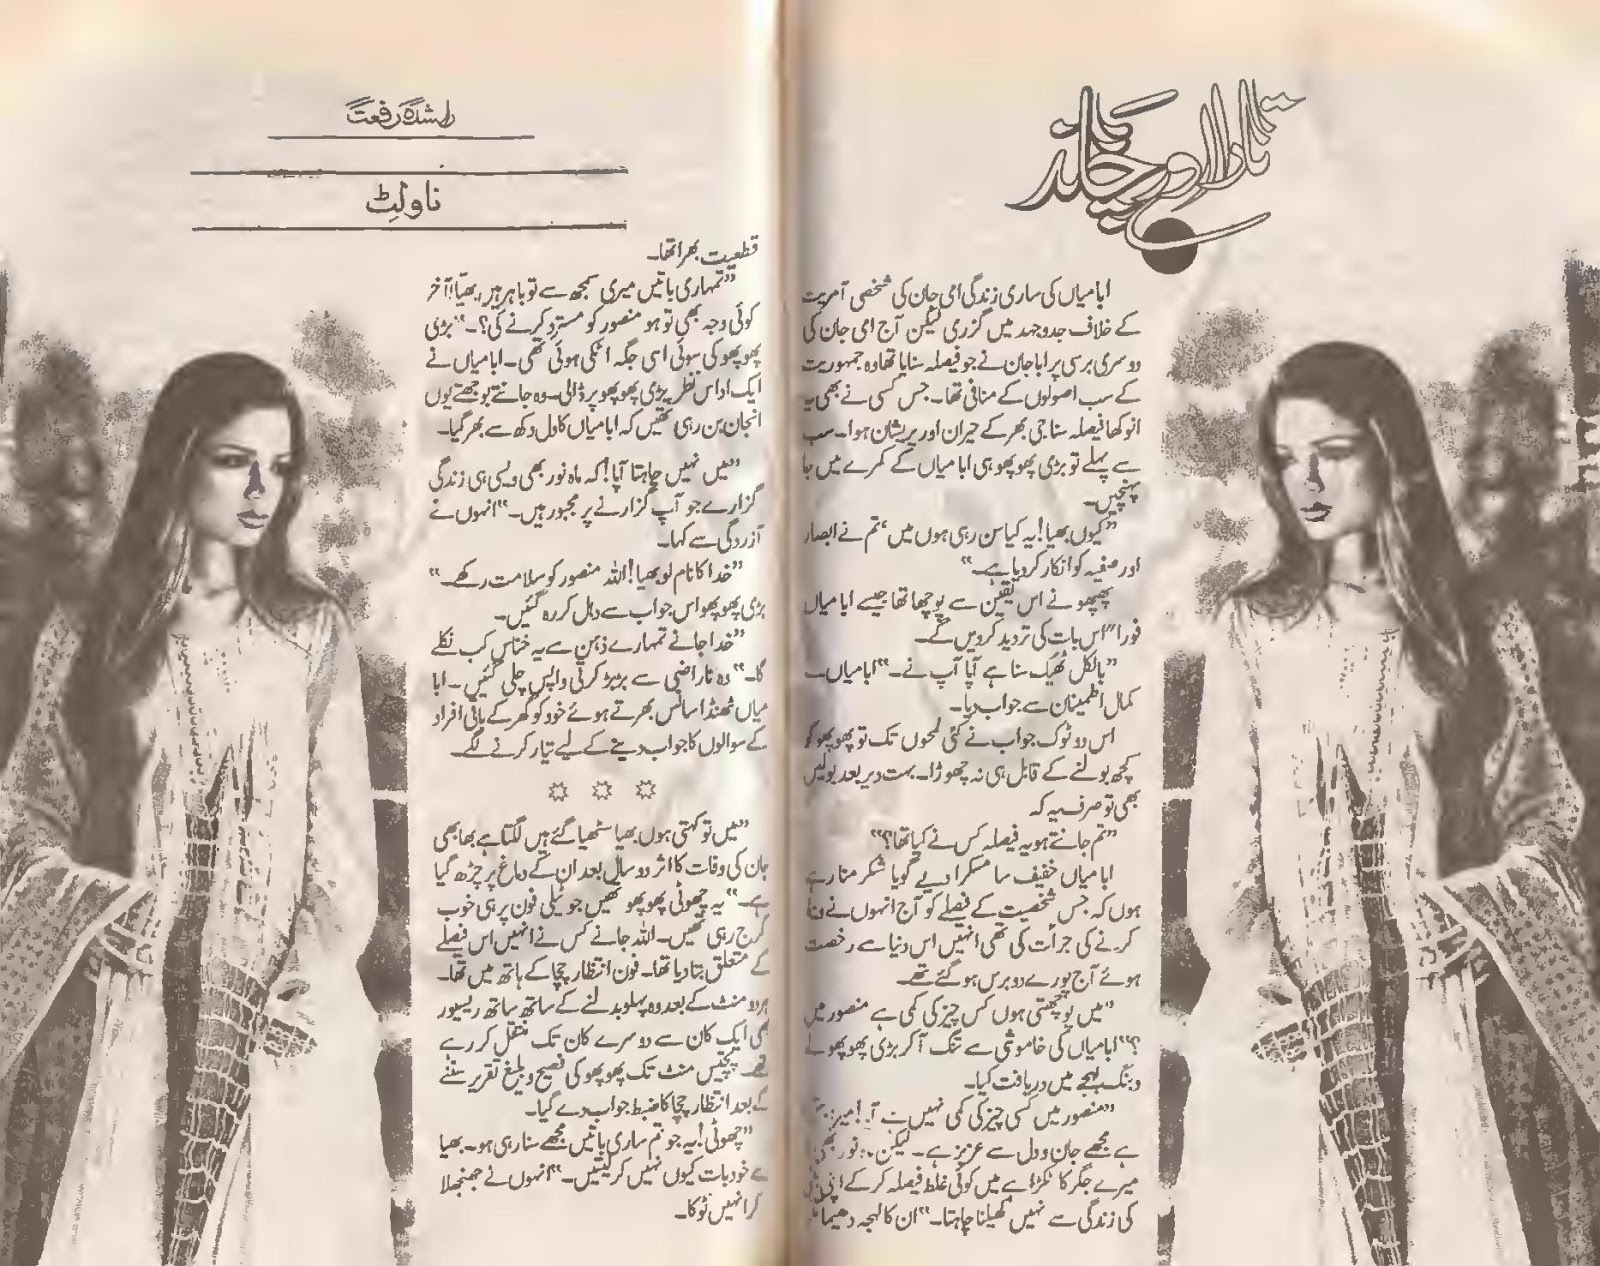 تارا اور چاند
ابا میاں کی ساری زندگی امی جان کی شخصی آمریت
کے خلاف جدوجہد میں گزری لیکن آج امی جان کی
دوسری برسی پر ابا جان نے جو فیصلہ سنایا تھا وہ جمہوریت
کے سب اصولوں کے منافی تھا۔ جس کسی نے بھی یہ
انوکھا فیصلہ سنا جی بھر کے حیران اور پریشان ہوا۔ سب
سے پہلے تو بڑی پھوپھو ہی ابا میاں کے کمرے میں جا
پہنچیں۔
”کیوں بھیا! یہ کیا سن رہی ہوں میں، تم نے ابصار
اور صفیہ کو انکار کر دیا ہے۔“
پھپھو نے اس یقین سے پوچھا تھا جیسے ابا میاں
فوراً اس بات کی تردید کر دیں گے۔
”بالکل ٹھیک سنا ہے آپا آپ نے۔“ ابا میاں
کمال اطمینان سے جواب دیا۔
اس دو ٹوک جواب نے کئی لمحوں تک تو پھوپھو کو
کچھ بولنے کے قابل ہی نہ چھوڑا۔ بہت دیر بعد بولیں
بھی تو صرف یہ کہ
”تم جانتے ہو یہ فیصلہ کس نے کیا تھا؟“
ابا میاں خفیف سا مسکرا دیے گویا شکر منا رہے
ہوں کہ جس شخصیت کے فیصلے کو آج انہوں نے
کرنے کی جرأت کی تھی انہیں اس دنیا سے رخصت
ہوئے آج پورے دو برس ہو گئے تھے۔
”میں پوچھتی ہوں کس چیز کی کمی ہے منصور میں
؟“ ابا میاں کی خاموشی سے تنگ آ کر بڑی پھوپھو نے
دبنگ لہجے میں دریافت کیا۔
”منصور میں کسی چیز کی کمی نہیں ہے آپا!
ہے مجھے جان و دل سے عزیز ہے۔ لیکن نور بھی
میرے جگر کا ٹکڑا ہے میں کوئی غلط فیصلہ کر کے اپنی
کی زندگی سے نہیں کھیلنا چاہتا۔“ ان کا لہجہ دھیما
راشدہ رفعت
ناولٹ
قطعیت بھرا تھا۔
”تمہاری باتیں میری سمجھ سے تو باہر ہیں، بھیا! آخر
کوئی وجہ بھی تو ہو منصور کو مسترد کرنے کی؟۔“ بڑی
پھوپھو کی سوئی اسی جگہ اٹکی ہوئی تھی۔ ابا میاں نے
ایک اداس نظر بڑی پھوپھو پر ڈالی۔ وہ جانتے بوجھتے یوں
انجان بن رہی تھیں کہ ابا میاں کا دل دکھ سے بھر گیا۔
”میں نہیں چاہتا آپا! کہ ماہ نور بھی ویسی ہی زندگی
گزارے جو آپ گزارنے پر مجبور ہیں۔“ انہوں نے
آزردگی سے کہا۔
”خدا کا نام لو بھیا! اللہ منصور کو سلامت رکھے۔“
بڑی پھوپھو اس جواب سے دہل کر رہ گئیں۔
”خدا جانے تمہارے ذہن سے یہ خناس کب نکلے
گا۔“ وہ ناراضی سے بڑبڑ کرتی واپس چلی گئیں۔ ابا
میاں ٹھنڈا سانس بھرتے ہوئے خود کو گھر کے باقی افراد
کے سوالوں کا جواب دینے کے لیے تیار کرنے لگے۔
”میں تو کہتی ہوں بھیا سٹھیا گئے ہیں لگتا ہے بھابھی
جان کی وفات کا اثر دو سال بعد ان کے دماغ پر چڑھ گیا
ہے۔“ یہ چھوٹی پھوپھو تھیں جو ٹیلی فون پر ہی خوب
گرج رہی تھیں۔ اللہ جانے کس نے انہیں اس فیصلے
کے متعلق بتا دیا تھا۔ فون انتظار چچا کے ہاتھ میں تھا۔
ہر دو منٹ کے بعد وہ پہلو بدلنے کے ساتھ ساتھ ریسیور
بھی ایک کان سے دوسرے کان تک منتقل کر رہے
تھے۔ پچیس منٹ تک پھوپھو کی فصیح و بلیغ تقریر سننے
کے بعد انتظار چچا کا ضبط جواب دے گیا۔
”چھوٹی! یہ جو تم ساری باتیں مجھے سنا رہی ہو۔ بھیا
سے خود بات کیوں نہیں کر لیتیں۔“ انہوں نے جھنجلا
کر انہیں ٹوکا۔